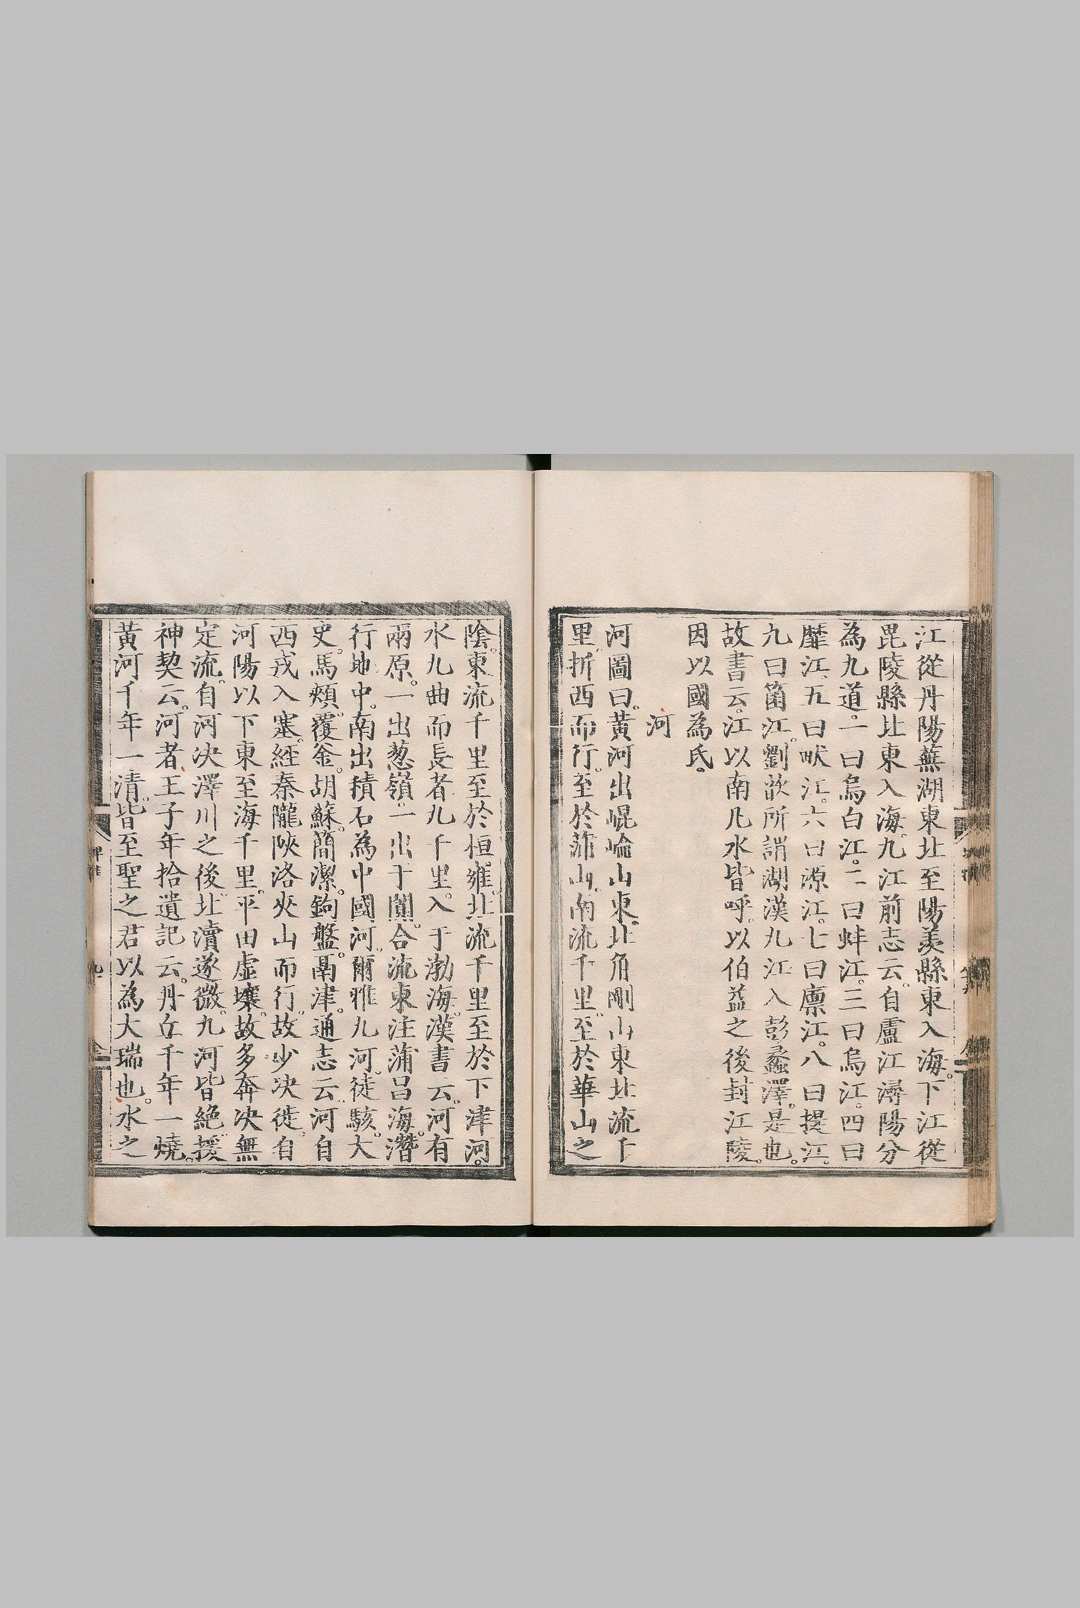 江從丹陽蕪湖東北至陽羨縣東入海。下江從
毘陵縣北東入海。九江前志云。自廬江潯陽分
為九道。一曰烏白江。二曰蚌江。三曰烏江。四曰
靡江。五曰畎江。六曰源江。七曰廩江。八曰提江。
九曰箘江。劉歆所謂湖漢九江入彭蠡澤。是也。
故書云。江以南凡水皆呼。以伯益之後封江陵。
因以國為氏。
河
河圖曰。黃河出崐崘山東北角剛山東北流千
里。折西而行。至於蒲山。南流千里。至於華山之
陰。東流千里至於恒雍。北流千里至於下津河。
水九曲而長者九千里。入于渤海。漢書云。河有
兩原。一出葱嶺。一出于闐。合流東注蒲昌海。潛
行地中。南出積石為中國河。爾雅九河徒駭。大
史。馬頰。覆釜。胡蘇。簡潔。鉤盤。鬲津。通志云。河自
西戎入塞。經秦隴陝洛夾山而行。故少决徙。自
河陽以下東至海千里。平田虛壤。故多奔决無
定流。自河决澤川之後。北瀆遂微。九河皆絕。援
神契云。河者。王子年拾遺記云。丹丘千年一燒。
黃河千年一清。皆至聖之君以為大瑞也。水之